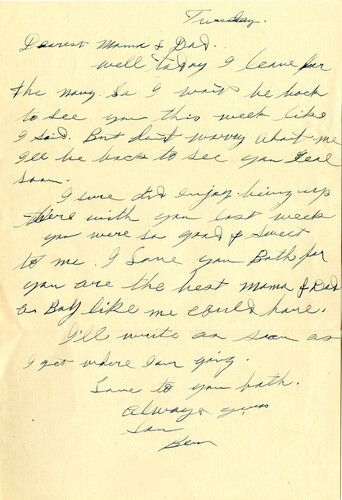 Tuesday.
Dearest Mama & Dad.
Well today I leave for
the navy. So I won't be back
to see you this week like
I said. But don't worry about me
I'll be back to see you real
soon.
I sure did enjoy being up
there with you last week
you were so good & sweet
to me. I Love you Both for
you are the best Mama & Dad
a Boy like me could have.
I'll write as soon as
I get where I am going.
Love to you both.
Always your
Son
Ben